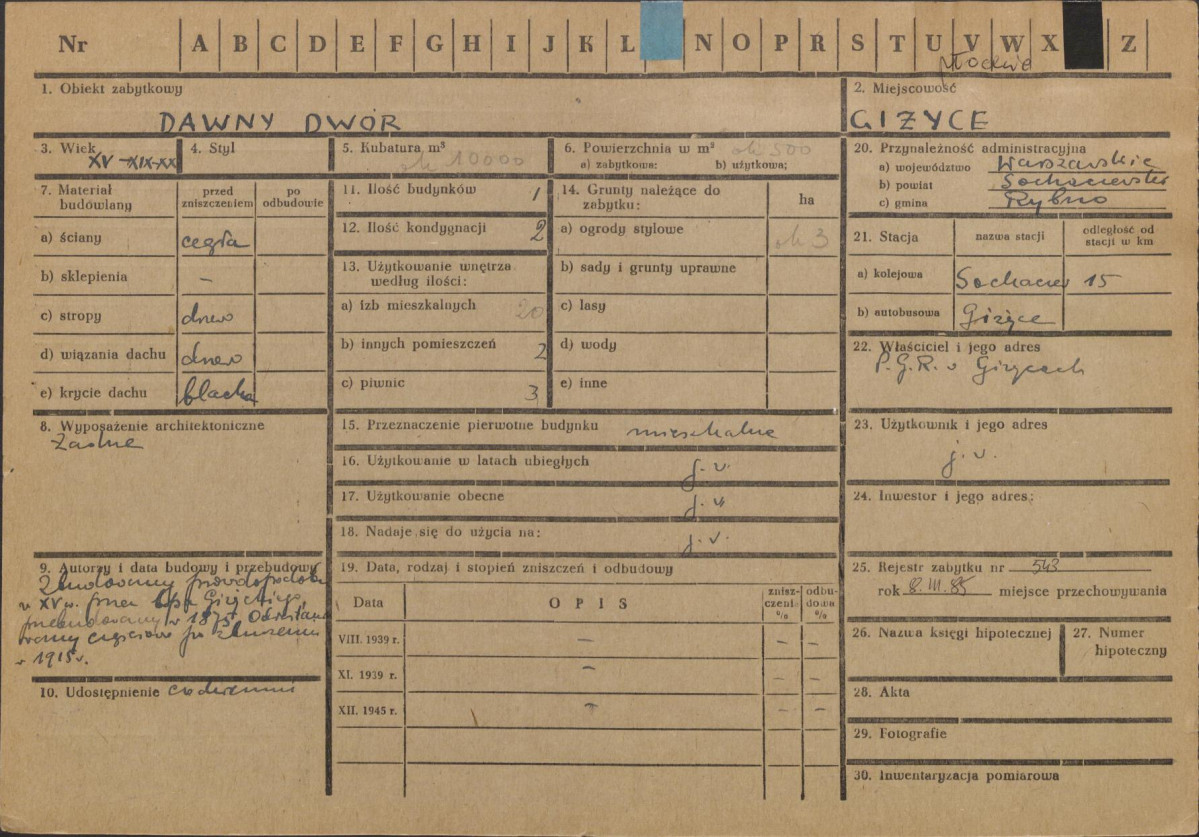 Nr A B C D E F G H I J K L N O P R S T U V W X Z
płockie
1. Obiekt zabytkowy
DAWNY DWÓR
2. Miejscowość
GIŻYCE
3. Wiek
XV-XIX-XX
4. Styl
5. Kubatura m³
ok 10000
6. Powierzchnia w m² ok 500
a) zabytkowa: b) użytkowa;
20. Przynależność administracyjna
a) województwo Warszawskie
b) powiat Sochaczewski
c) gmina Rybno
7. Materiał budowlany
przed zniszczeniem
po odbudowie
a) ściany cegła
b) sklepienia –
c) stropy drewo
d) wiązania dachu drewo
e) krycie dachu blacha
11. Ilość budynków 1
12. Ilość kondygnacji 2
13. Użytkowanie wnętrza
według ilości:
a) izb mieszkalnych 20
b) innych pomieszczeń 2
c) piwnic 3
14. Grunty należące do
zabytku:
ha
a) ogrody stylowe ok 3
b) sady i grunty uprawne
c) lasy
d) wody
e) inne
21. Stacja
nazwa stacji
odległość od
stacji w km
a) kolejowa Sochaczew 15
b) autobusowa Giżyce
22. Właściciel i jego adres
P.G.R. w Giżycach
8. Wyposażenie architektoniczne
Żadne
15. Przeznaczenie pierwotne budynku mieszkalne
16. Użytkowanie w latach ubiegłych j.w.
17. Użytkowanie obecne j.w.
18. Nadaje się do użycia na: j.w.
23. Użytkownik i jego adres
j.w.
24. Inwestor i jego adres:
9. Autorzy i data budowy i przebudowy
Zbudowany prawdopodob.
w XV w. przez bpa Giżyckiego,
przebudowany w 1875,
wany częściowo po zburzeniu
w 1915 r.
10. Udostępnienie codziennie
19. Data, rodzaj i stopień zniszczeń i odbudowy
Data
OPIS
znisz-
czeni
%
odbu-
dowa
%
VIII. 1939 r. – – –
XI. 1939 r. – – –
XII. 1945 r. – – –
25. Rejestr zabytku nr 543
rok 8.III.85 miejsce przechowywania
26. Nazwa księgi hipotecznej
27. Numer
hipoteczny
28. Akta
29. Fotografie
30. Inwentaryzacja pomiarowa